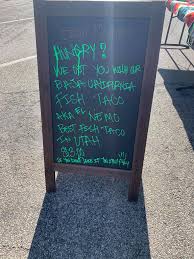 HUNGRY?
WE GOT YOU WITH OUR
BAJA CALIFORNIA
FISH TACO
AKA EL NEMO
BEST FISH TACO
IN UTAH
$3.50